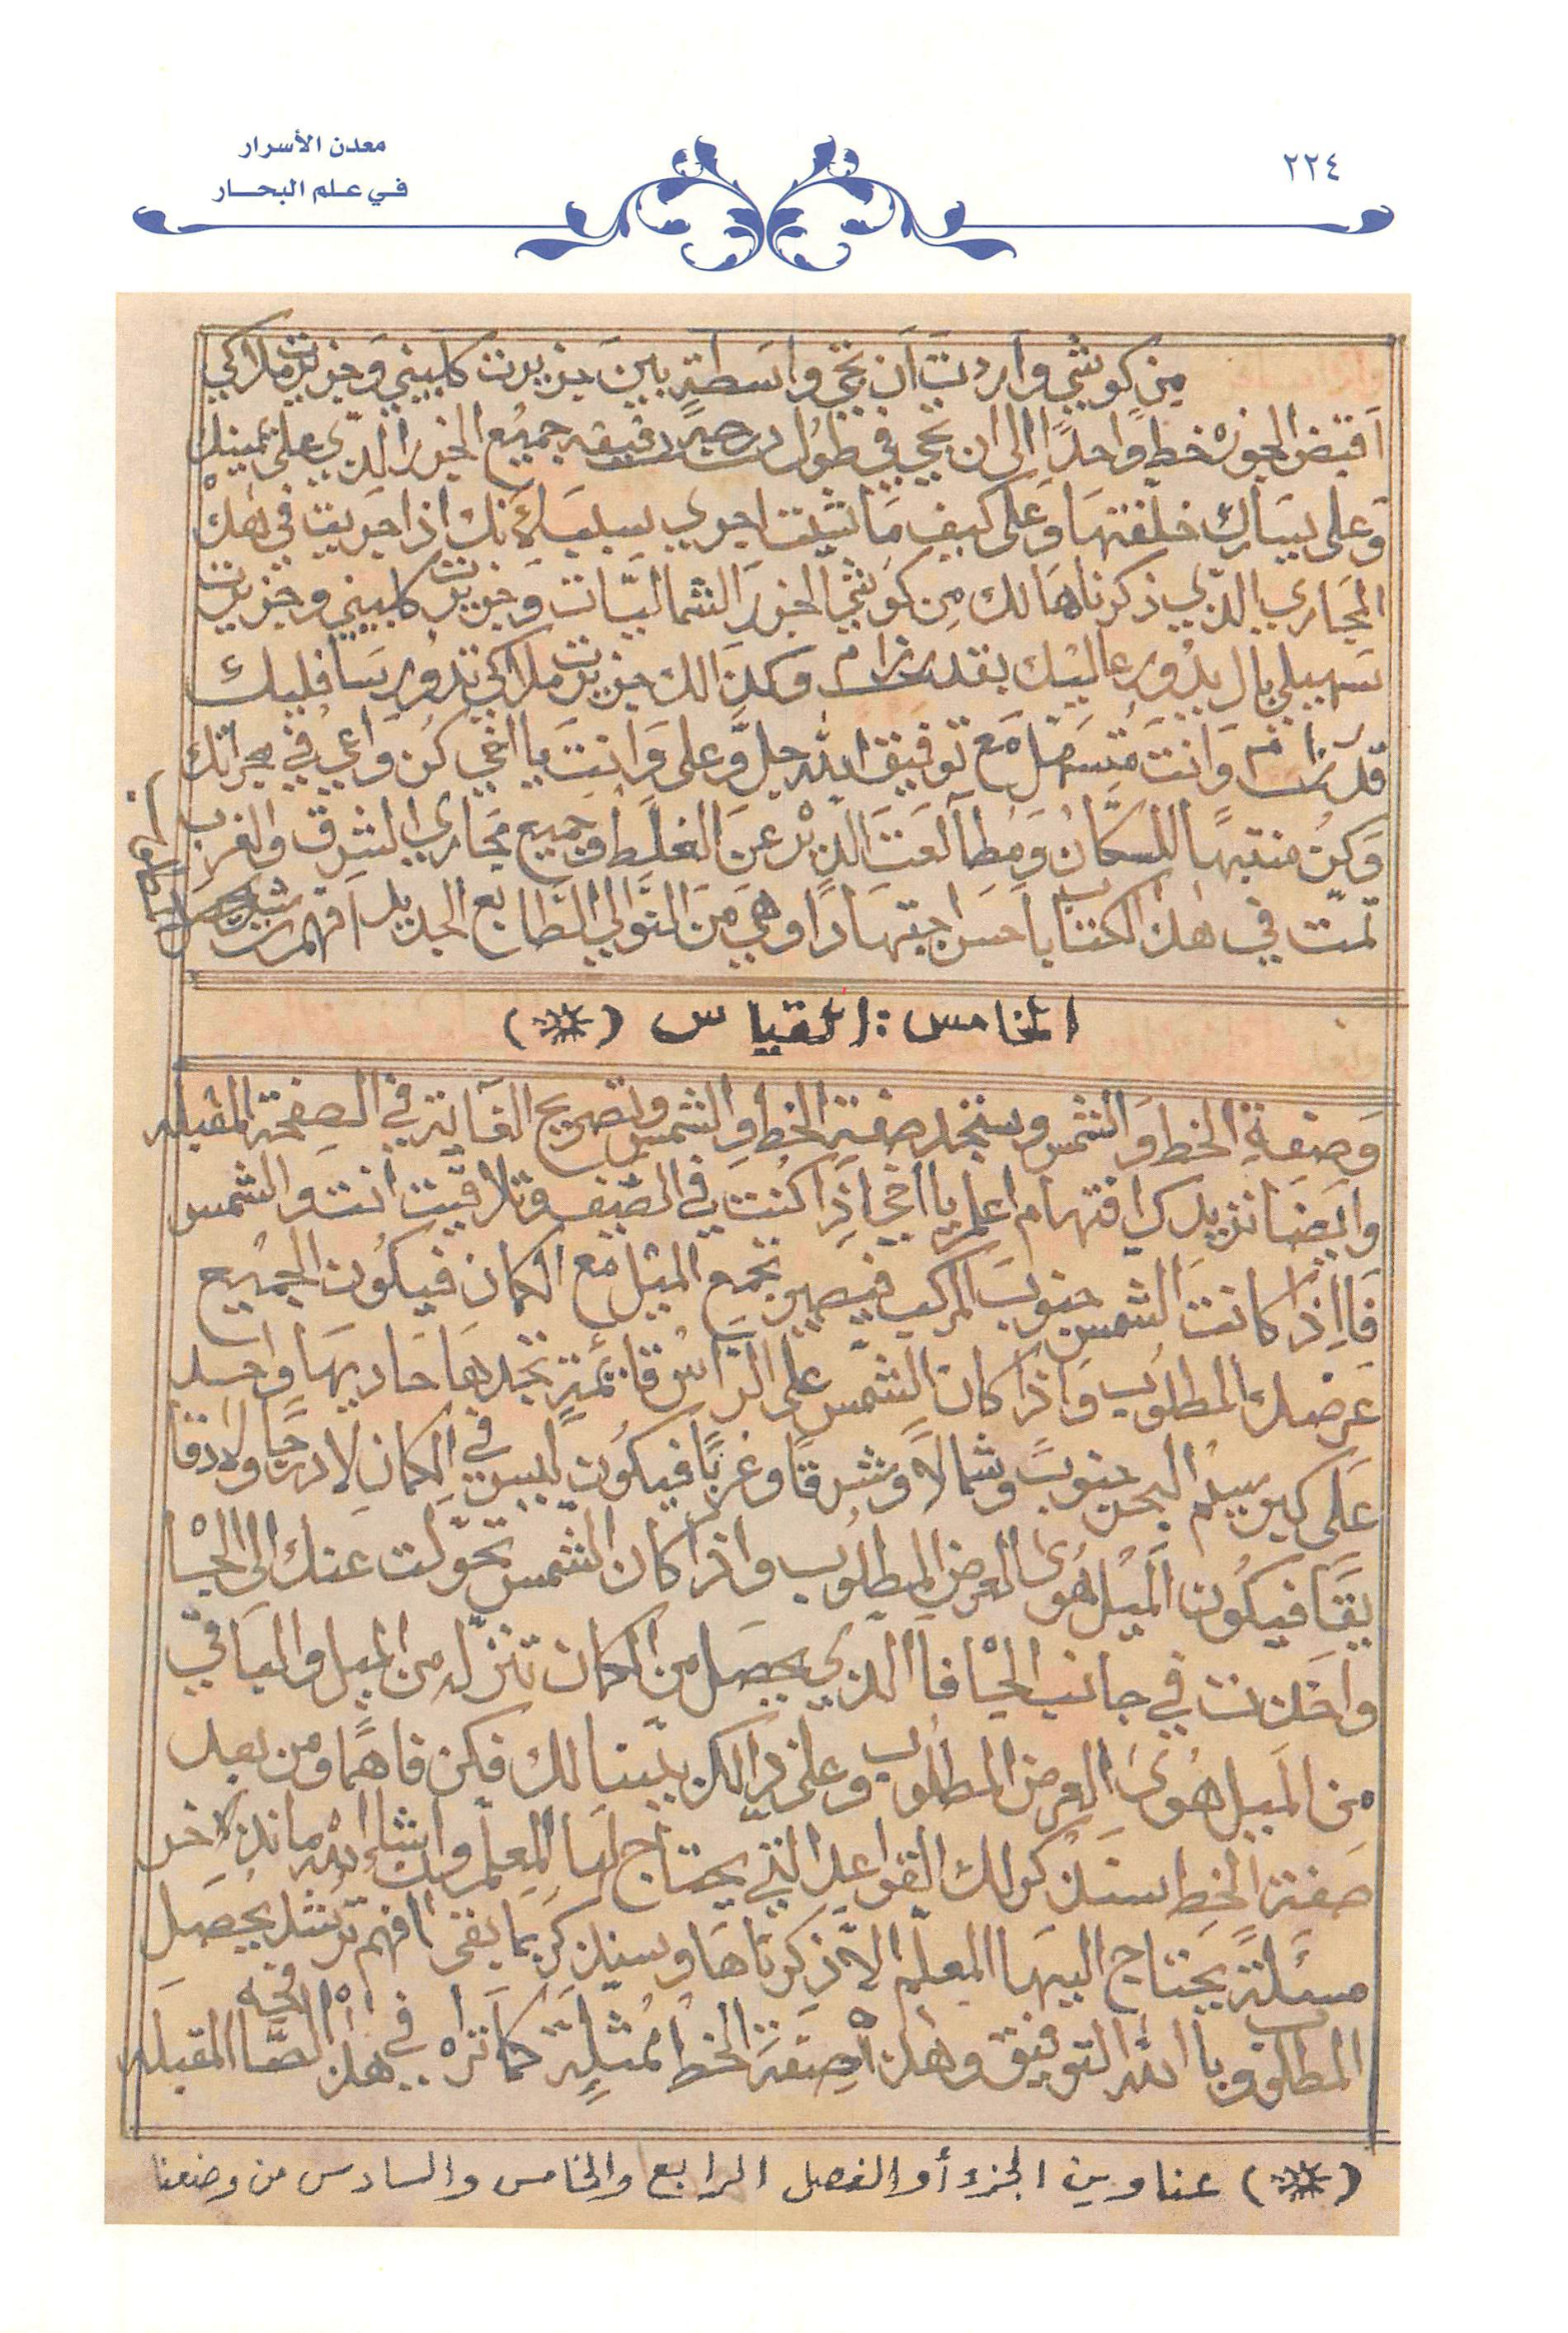 معدن الأسرار
في علم البحار
٢٢٤
من كوشي واردت ان تجي واسطة بين جزيرت كلبيني وجزيرت ملاكي
اقبض الجوزه خط واحدًا الى ان تجي في طول درجة دقيقه جميع الجزر الذي على يمينك
وعلى يسارك خلفتها وعلى كيف ما شيت اجري لانك اذا جريت في هذه
المجاري الذي ذكرناها لك من كوشي الجزر الشماليات وجزيرت كلبيني وجزيرت
سهيلي بال يدور عاليك بقدر زام وكذالك جزيرت ملاكي تدور سافليك
قدر زام وانت متسهل مع توفيق الله جل وعلى وانت يا اخي كن واعي في مجراتك
وكن منتبهًا للسكان ومطالعت الديره عن الغلط وجميع مجاري الشرق والغرب
تمت في هذا الكتاب باحسن اجتهادًا وهي من النوالي الطابع الجديد افهم ترشد
الخامس : القياس (*)
وصفة الخط والشمس وستجد صفة الخط والشمس وتصريح الغاية في الصفحة المقبله
وايضا نزيدك افتهام اعلم يا اخي اذا كنت في الصيف وتلاقيت انت والشمس
فااذا كانت الشمس جنوب المركب فيصير تجمع الميل مع الكمان فيكون الجميع
عرضك المطلوب واذا كان الشمس على الراس قائمة تجدها حاديها واحد
على كير سيم البحر جنوبً وشمالاً وشرقًا وغربًا فيكون ليس في الكمان لا درجًا ولا دقا
يقًا فيكون الميل هوى العرض المطلوب واذا كان الشمس تحولت عنك الى الجاه
واخذت في جانب الجاه فاالذي يحصل من الكمان تنزله من الميل والباقي
من الميل هوى العرض المطلوب وعلى ذالك بينا لك فكن فاهمًا ومن بعد
صفة الخط سنذكر لك القواعد التي يحتاج لها المعلم وانشاء الله ما ندخر
مسئلة يحتاج اليها المعلم الا ذكرناها وسنذكر بما بقى افهم ترشد يحصل
المطلوب وبا الله التوفيق وهذه صفة الخط ممثلة كما تراه في هذا الصفحه المقبله
(*) عناوين الجزء أو الفصل الرابع والخامس والسادس من وضعنا